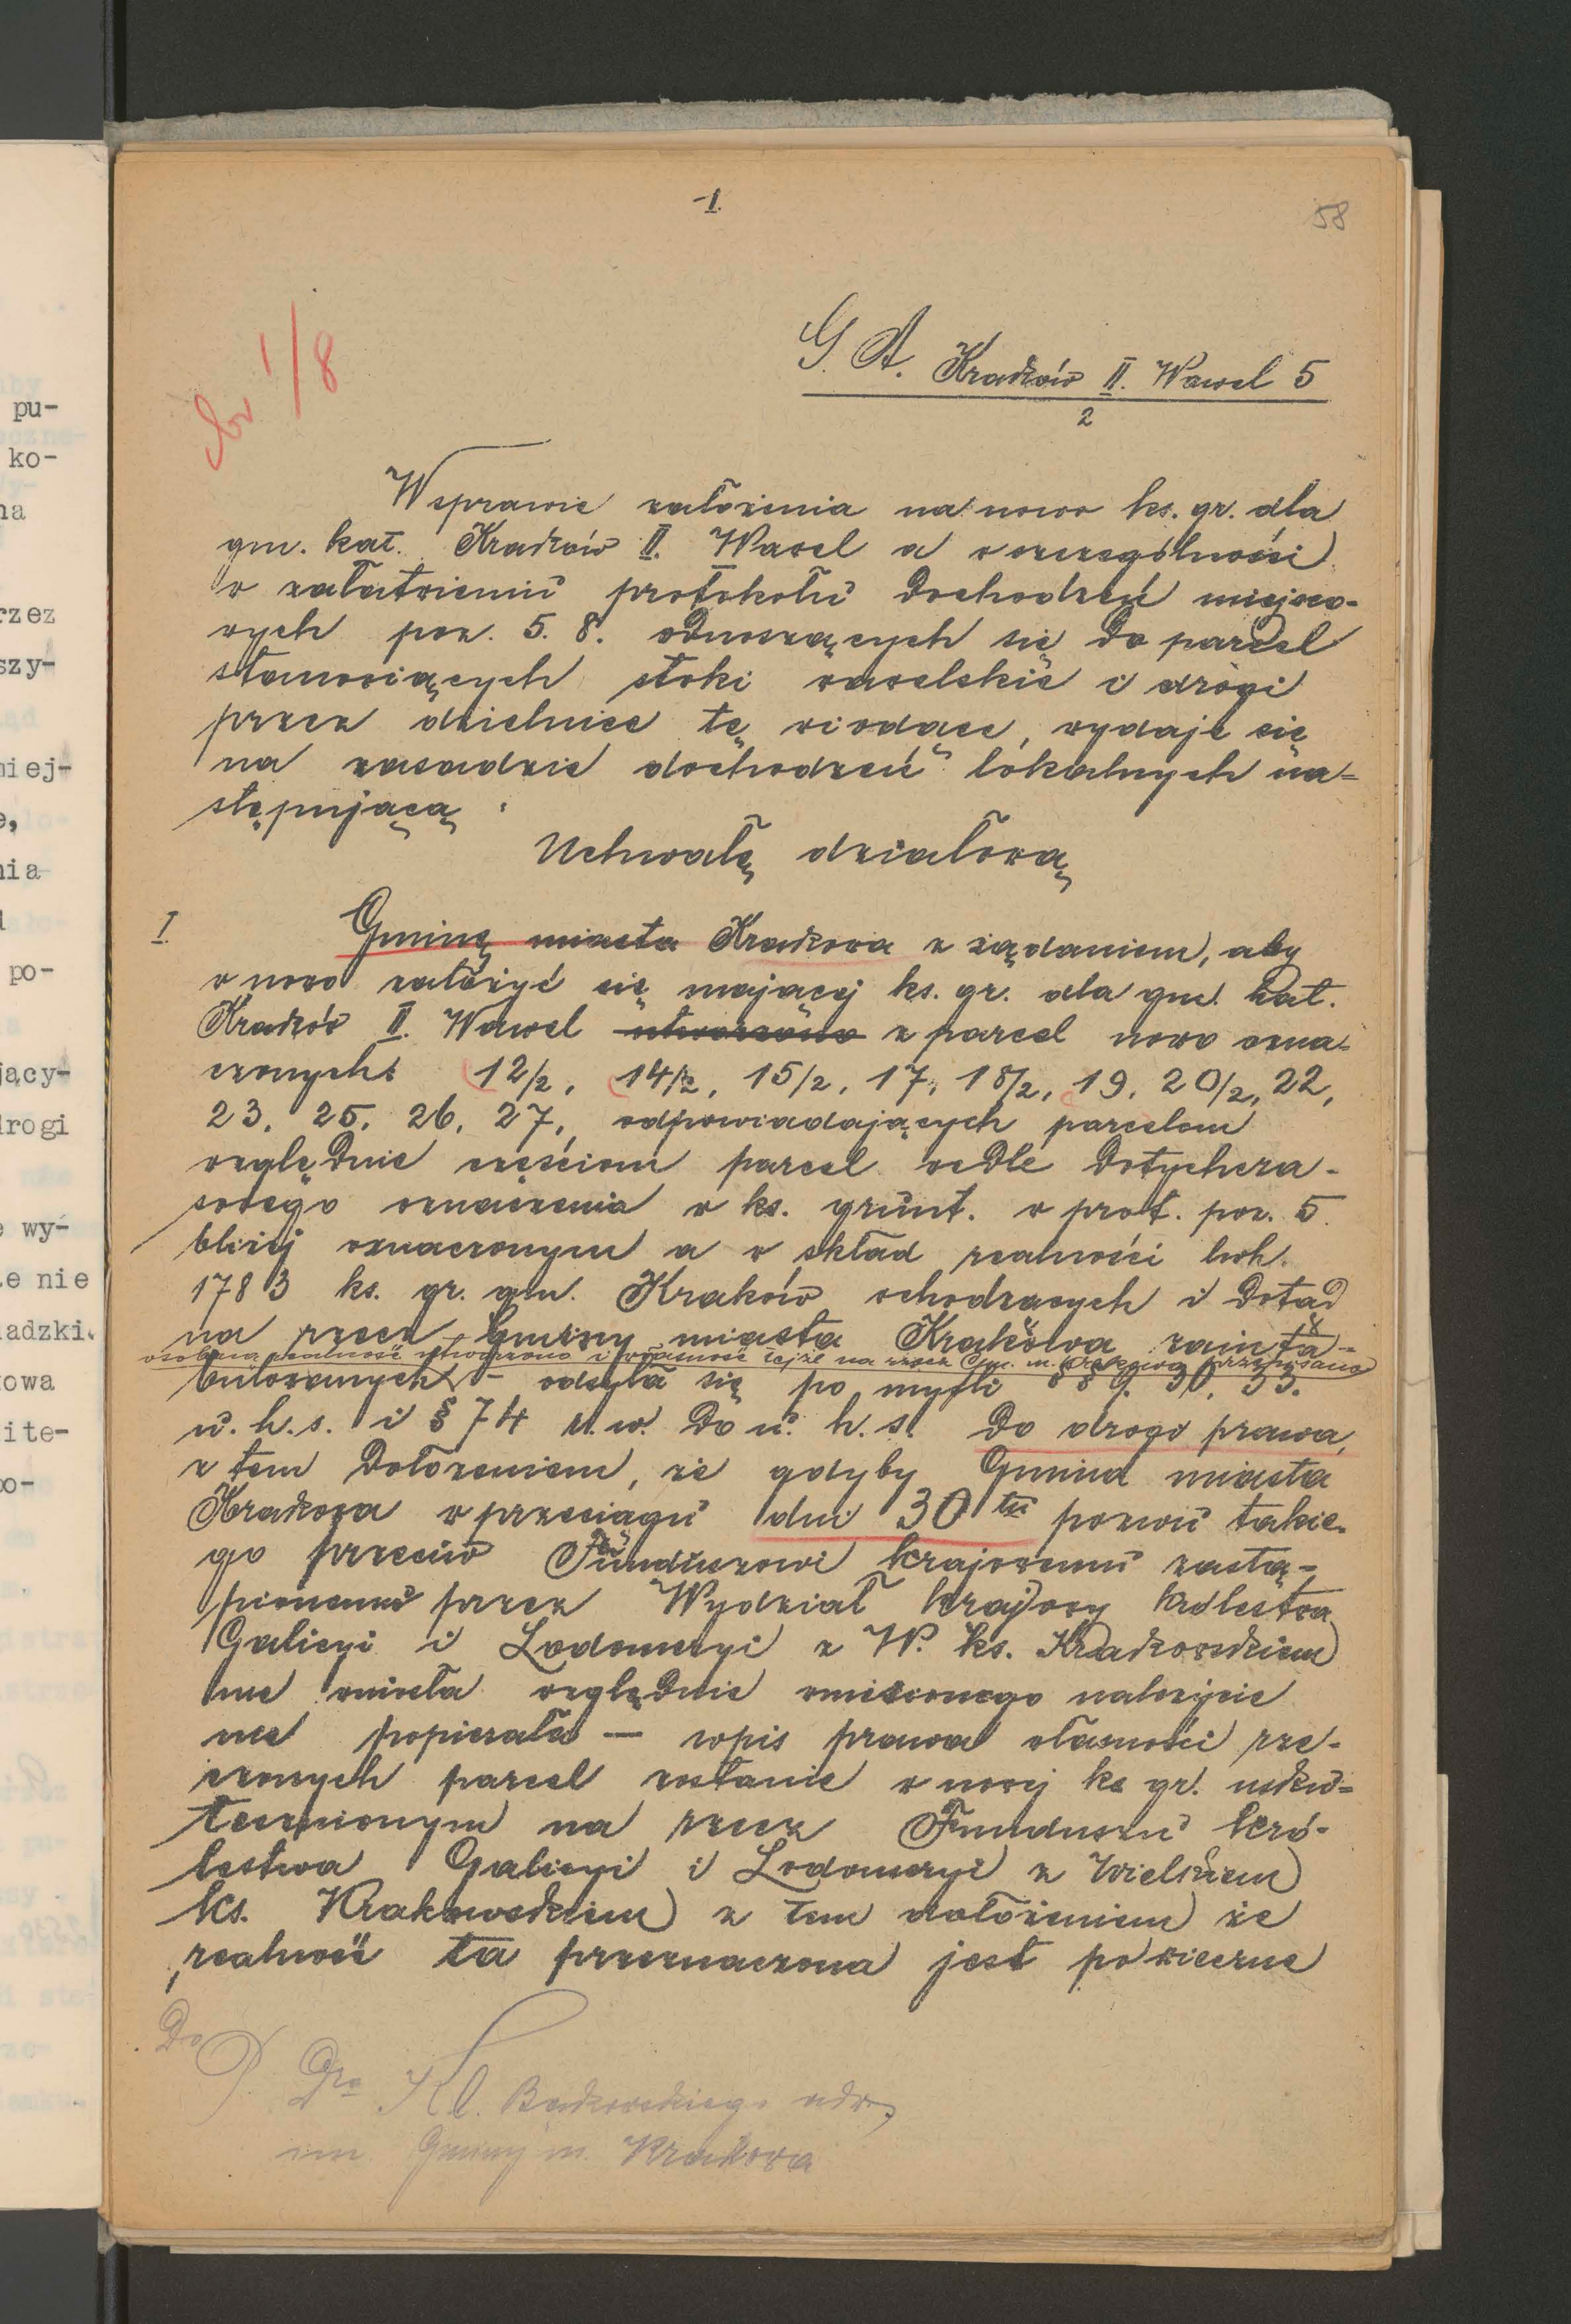 -I.
58
1/8
G. A. Kraków II. Wawel 5
2
W sprawie założenia na nowo ks. gr. dla
gm. kat. Kraków II. Wawel a w szczególności
w załatwieniu protokołu dochodzeń miejsco-
wych poz. 5. 8. odnoszących się do parcel
stanowiących stoki wawelskie i drogi
przez dzielnicę tę wiodące, wydaje się
na zasadzie dochodzeń lokalnych na-
stępującą :
Uchwałę działową
I.
Gminę miasta Krakowa z żądaniem, aby
w nowo założyć się mającej ks. gr. dla gm. kat.
Kraków II. Wawel utworzono z parcel nowo ozna-
czonych: 12/2, 14/2, 15/2, 17, 18/2, 19, 20/2, 22,
23. 25. 26. 27., odpowiadających parcelom
względnie częściom parcel wedle dotychcza-
sowego oznaczenia w ks. grunt. w prot. poz. 5.
bliżej oznaczonym a w skład realności lwh.
1783 ks. gr. gm. Kraków wchodzących i dotąd
na rzecz Gminy miasta Krakowa zainta-
osobną realność utworzono i własność tejże na rzecz Gm. m. Krakowa przepisano
bulowanych – odsyła się po myśli §§ 9. 30. 33.
u. h. s. i § 74 u. w. do u. h. s. do drogi prawa,
z tem dołożeniem, że gdyby Gmina miasta
Krakowa w przeciągu dni 30tu pozwu takie-
go przeciw Funduszowi krajowemu zastą-
pionemu przez Wydział krajowy królestwa
Galicyi i Lodomeryi z W. ks. Krakowskiem
nie wniosła względnie wniesionego należycie
nie popierała — wpis prawa własności rze-
czonych parcel zostanie w nowej ks gr. usku-
tecznionym na rzecz Funduszu kró-
lestwa Galicyi i Lodomeryi z Wielkiem
ks. Krakowskiem z tem dołożeniem że
realność ta przeznaczona jest po wieczne
Do
P. Dra Kl. Bąkowskiego adw.
im. Gminy m. Krakowa
pu-
ko-
na
rzez
szy-
miej-
e,
nia
po-
jący-
drogi
wy-
że nie
ładzki.
kowa
ite-